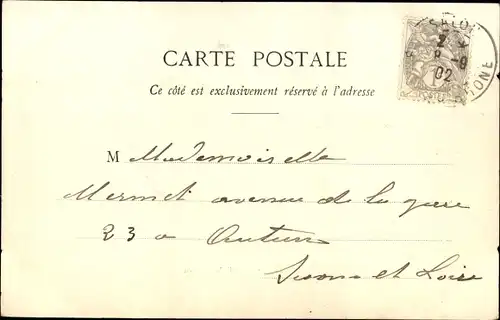 CARTE POSTALE
Ce côté est exclusivement réservé à l'adresse
M Mademoiselle
Mermet avenue de la gare
23 a Autun
Saone et Loire
02